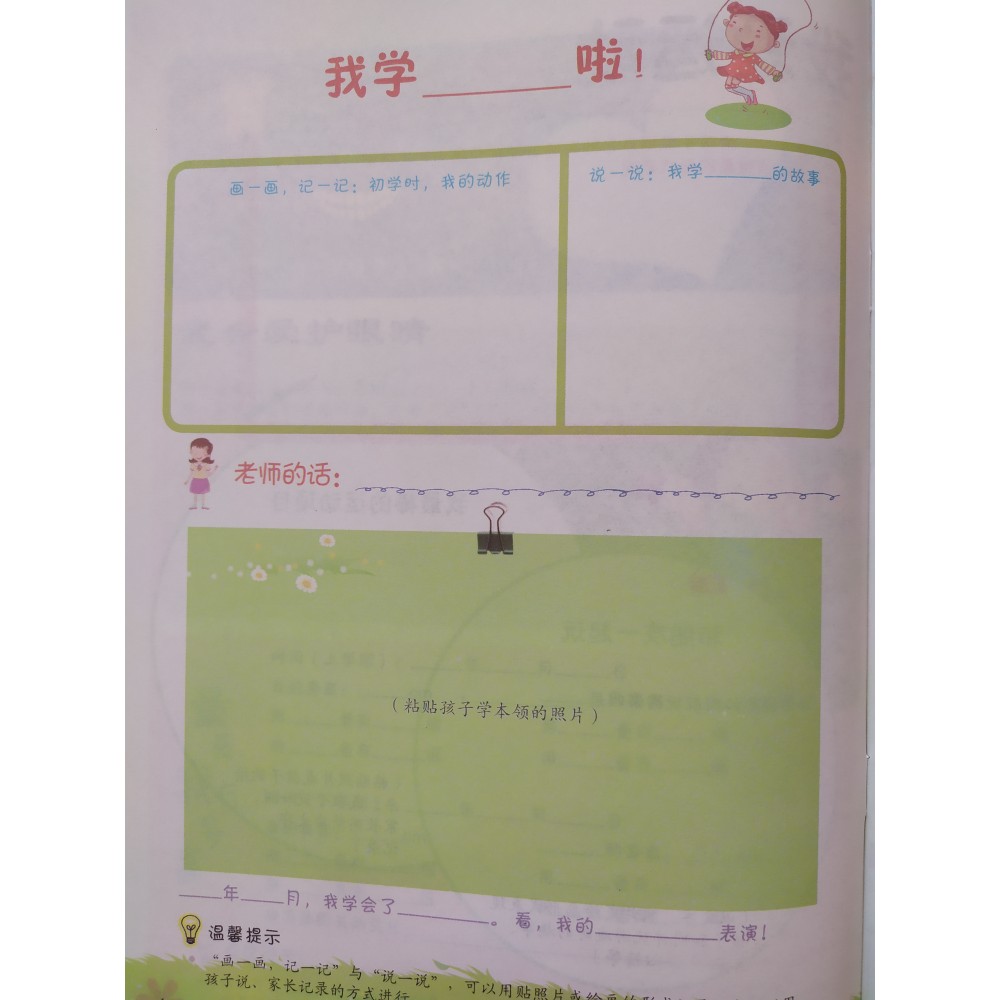 我学______啦！
画一画，记一记：初学时，我的动作
说一说：我学______的故事
老师的话：
（粘贴孩子学本领的照片）
____年____月，我学会了________。看，我的__________表演！
温馨提示
“画一画，记一记”与“说一说”，可以用贴照片或绘画的形式
孩子说、家长记录的方式进行